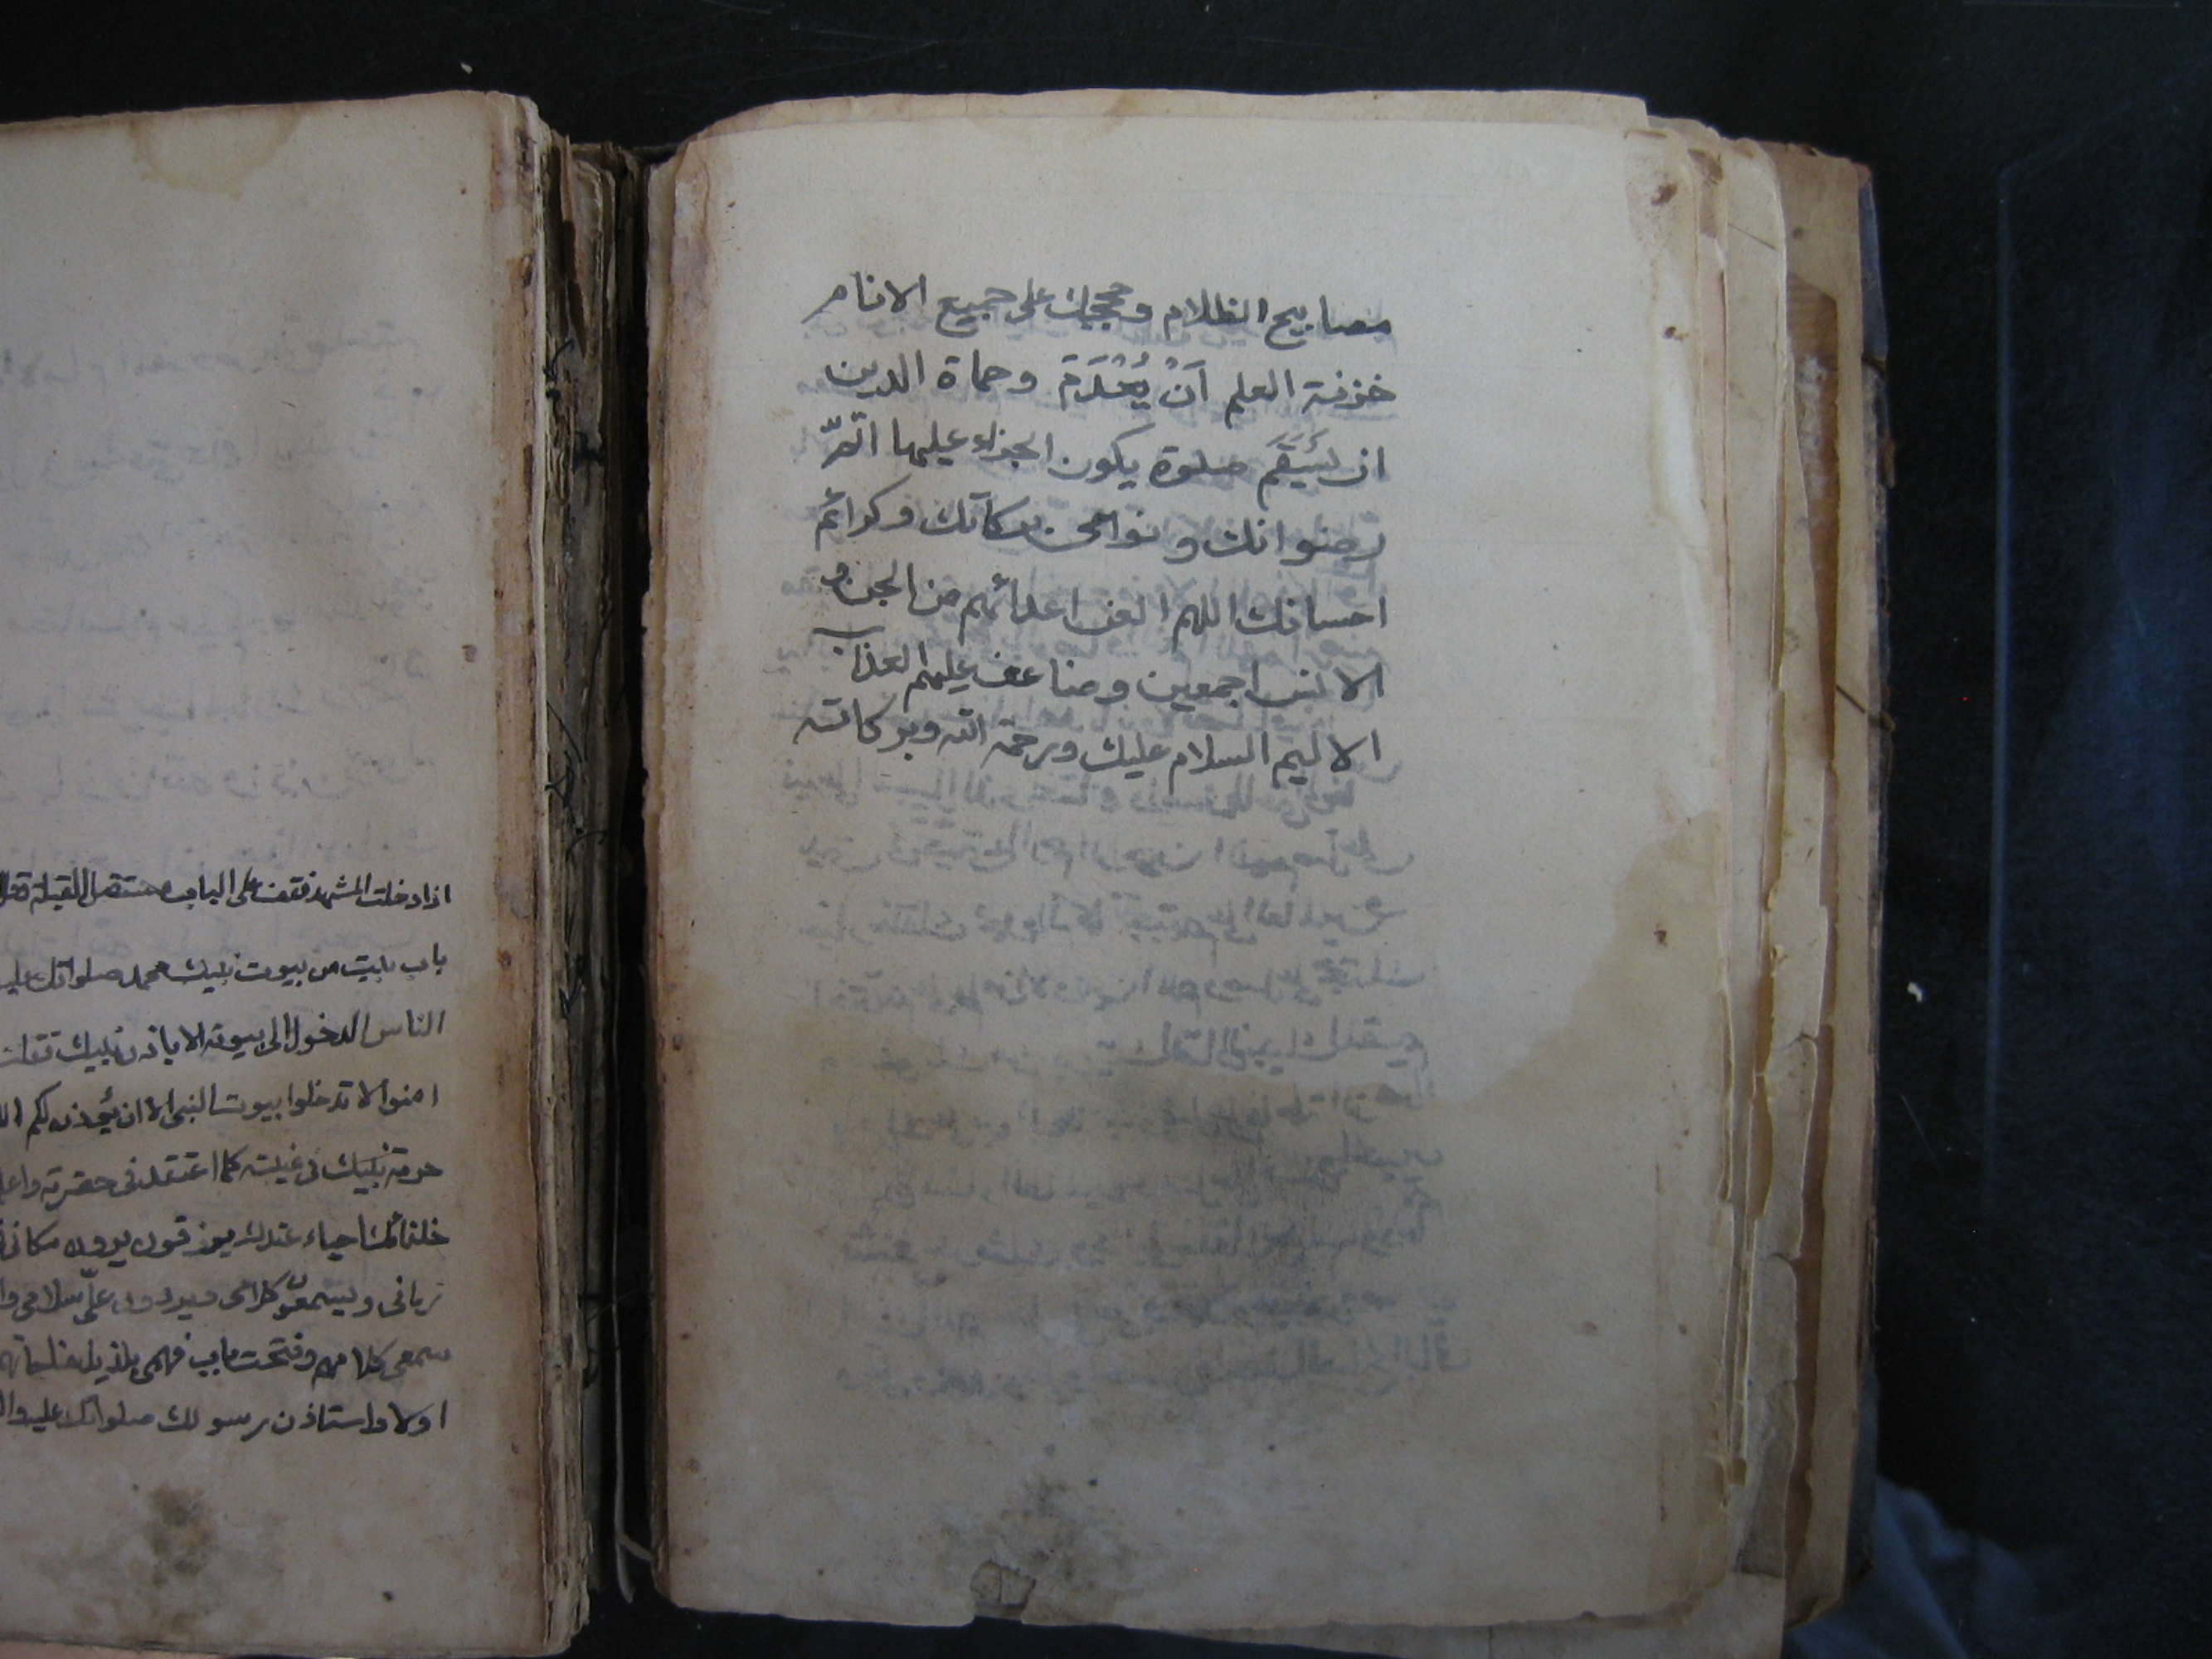 مصابيح الظلام وحججك على جميع الانام
خزنة العلم اَنْ يُعْدَمَ وحماة الدين
ان يَسْقَمَ صلوة يكون الجزاء عليها اتمّ
رضوانك ونوامى بركاتك وكرائم
احسانك اللهم العن اعدائهم من الجن و
الانس اجمعين وضاعف عليهم العذاب
الاليم السلام عليك ورحمة الله وبركاته
اذا دخلت المشهد فقف على الباب مستقبل القبلة وقل
باب بيت من بيوت نبيك محمد صلواتك عليه
الناس الدخول الى بيوته الا باذن نبيك فقلت
امنوا لا تدخلوا بيوت النبى الا ان يؤذن لكم
حرمة نبيك فى غيبته كما اعتقد فى حضرته
خلفائك احياء عندك يرزقون يرون مكانى
زمانى ويسمعون كلامى ويردون علىّ سلامى
سمعى كلامهم وفتحت باب فهمى بلذيذ مناجاتهم
اولا واستاذن رسولك صلواتك عليه